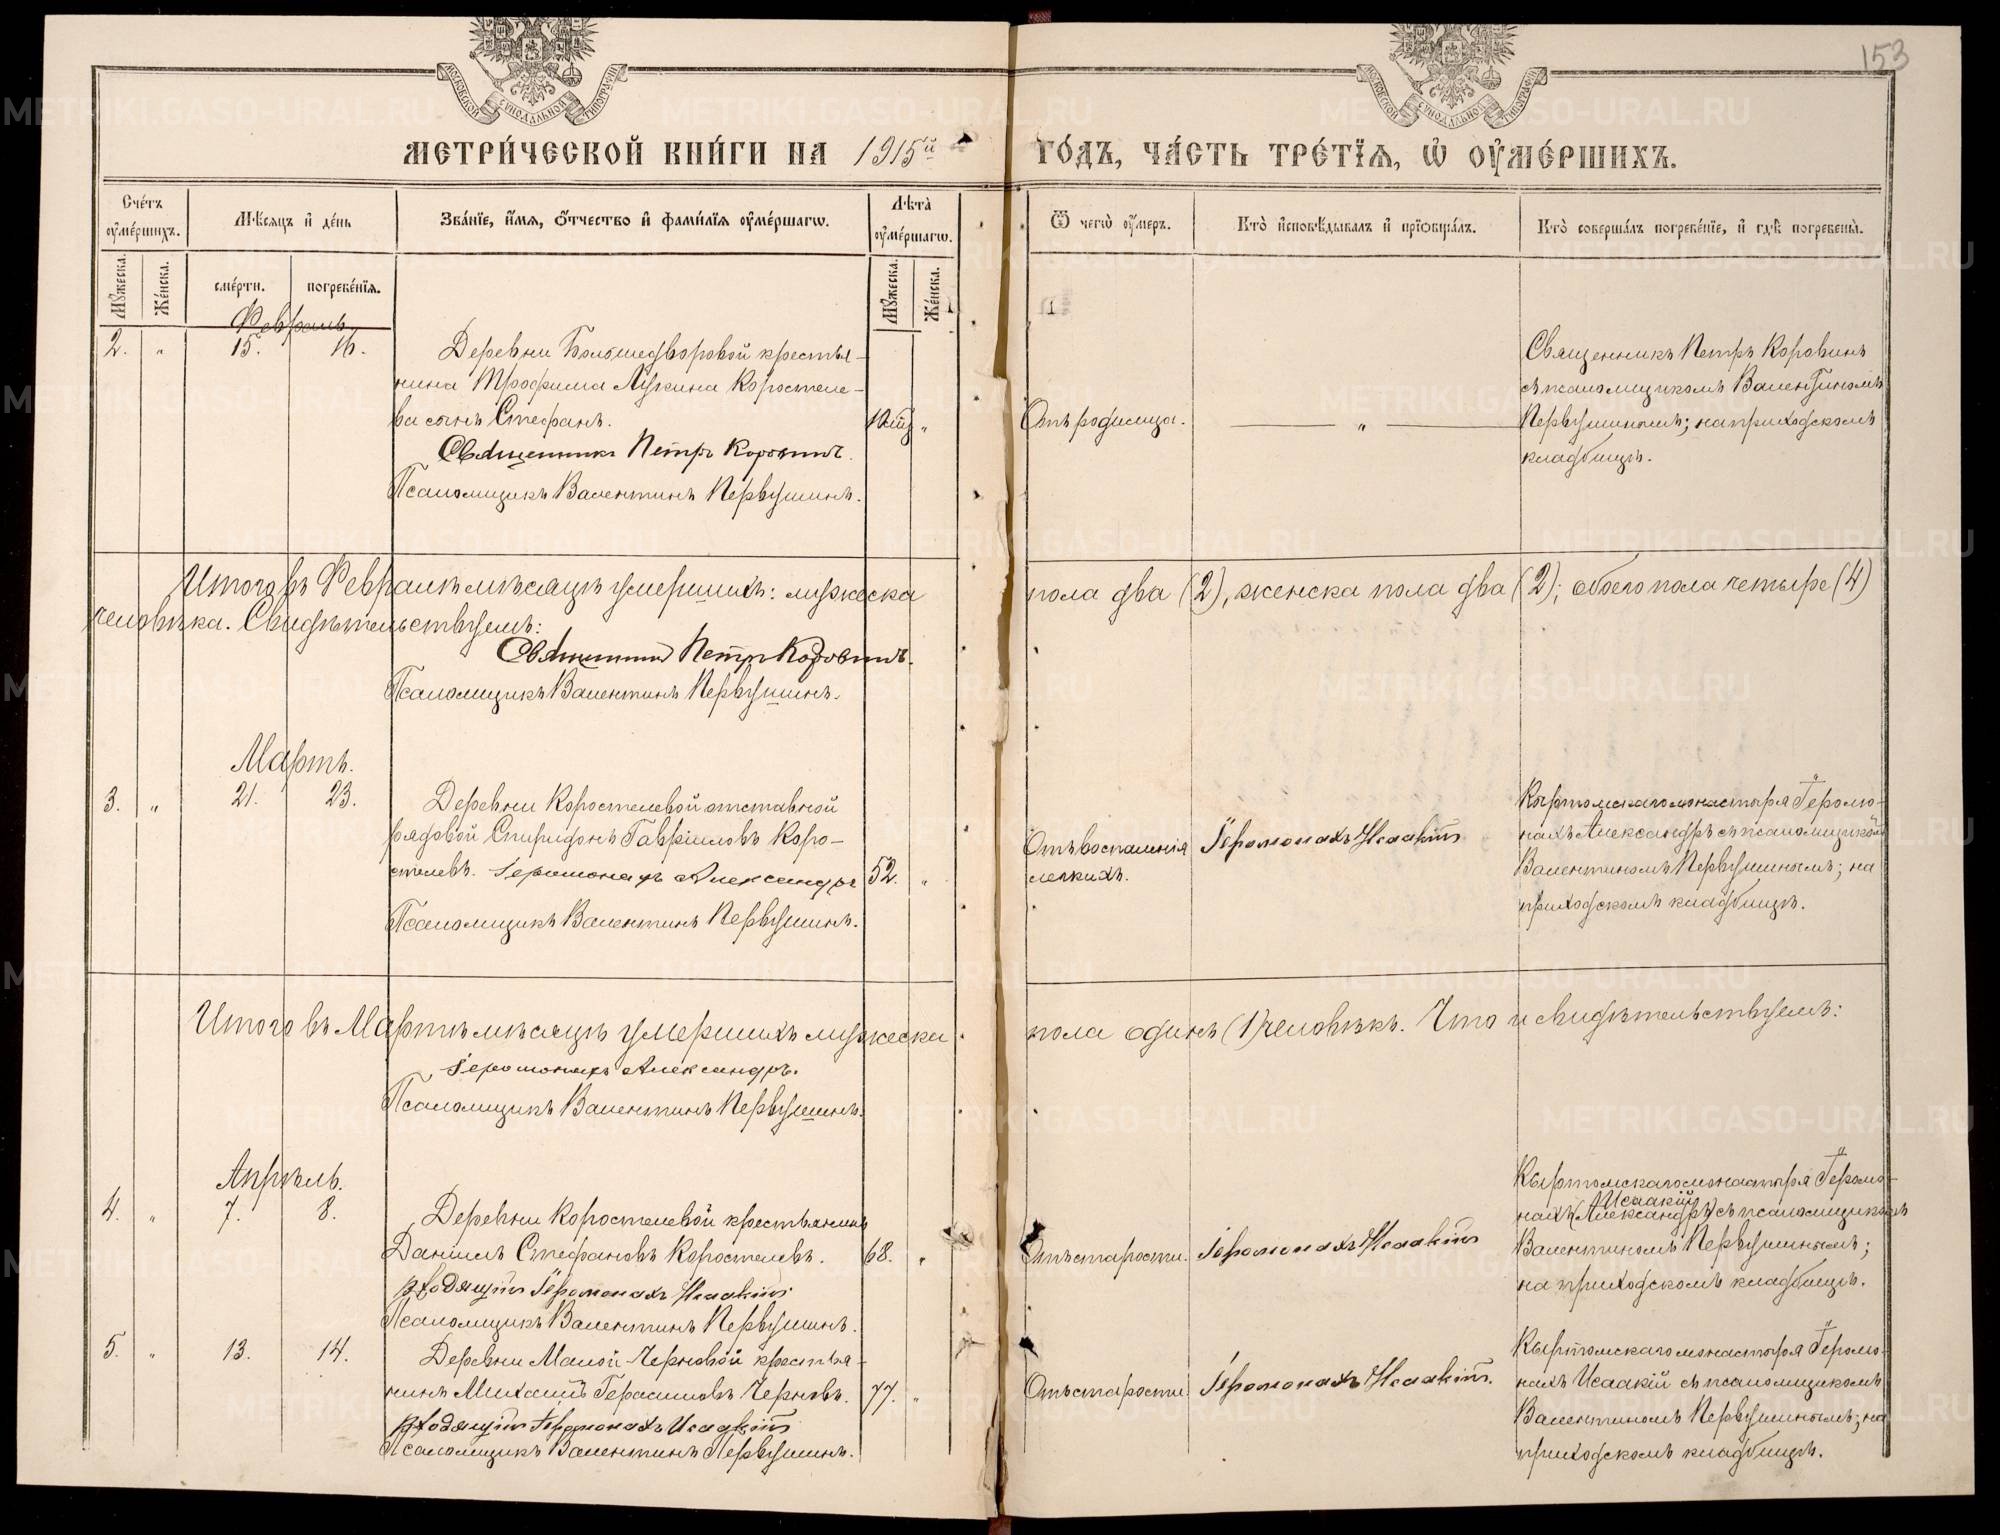 153
МОСКОВСКОЙ СѴНОДАЛЬНОЙ ТИПОГРАФІИ
МОСКОВСКОЙ СѴНОДАЛЬНОЙ ТИПОГРАФІИ
МЕТРИ́ЧЕСКОЙ КНИ́ГИ НА 1915й ГО́ДЪ, ЧА́СТЬ ТРЕ́ТЇѦ, Ѡ҆ ОУ҆МЕ́РШИХЪ.
Счéтъ оу҆мéршихъ.
Мѣ́сѧцъ и҆ дéнь
Звáнїе, и҆́мѧ, ѻ҆́тчество и҆ фами́лїѧ оу҆мéршагѡ.
Лѣ́та̀ оу҆мéршагѡ.
Ѿ чегѡ̀ оу҆́меръ.
Кто̀ и҆сповѣ́дывалъ и҆ прїѡбщáлъ.
Кто̀ совершáлъ погребéнїе, и҆ гдѣ̀ погребены̀.
Мꙋ́жеска.
Жéнска.
смéрти.
погребéнїѧ.
Мꙋ́жеска.
Жéнска.
Февраль
2. " 15. 16. Деревни Большедворовой крестья-
нина Трофима Лукина Коростеле-
ва сынъ Стефанъ. "
Священникъ Петръ Коровинъ.
Псаломщикъ Валентинъ Первушинъ.
Отъ родимца.
"
Священникъ Петръ Коровинъ
съ псаломщикомъ Валентиномъ
Первушинымъ; на приходскомъ
кладбищѣ.
Итого въ Февралѣ мѣсяцѣ умершихъ: мужеска пола два (2), женска пола два (2); обоего пола четыре (4)
человѣка. Свидѣтельствуемъ:
Священникъ Петръ Коровинъ.
Псаломщикъ Валентинъ Первушинъ.
Мартъ.
3. " 21. 23. Деревни Коростелевой отставной
рядовой Спиридонъ Гавріиловъ Коро-
стелевъ. Іеромонахъ Александръ 52. "
Псаломщикъ Валентинъ Первушинъ.
Отъ воспаленія
легкихъ.
Іеромонахъ Исаакій
Кыртомскаго монастыря Іеромо-
нахъ Александръ съ псаломщикомъ
Валентиномъ Первушинымъ; на
приходскомъ кладбищѣ.
Итого въ Мартѣ мѣсяцѣ умершихъ мужеска пола одинъ (1) человѣкъ. Что и свидѣтельствуемъ:
Іеромонахъ Александръ.
Псаломщикъ Валентинъ Первушинъ.
Апрѣль.
4. " 7. 8. Деревни Коростелевой крестьянинъ
Даніилъ Стефановъ Коростелевъ. 68. "
Іеромонахъ Исаакій
Псаломщикъ Валентинъ Первушинъ.
Отъ старости.
Іеромонахъ Исаакій
Кыртомскаго монастыря Іеромо-
Исаакій
нахъ (Александръ) съ псаломщикомъ
Валентиномъ Первушинымъ;
на приходскомъ кладбищѣ.
5. " 13. 14. Деревни Малой-Черновой крестья-
нинъ Михаилъ Герасимовъ Черновъ. 77. "
Іеромонахъ Исаакій
Псаломщикъ Валентинъ Первушинъ.
Отъ старости
Іеромонахъ Исаакій.
Кыртомскаго монастыря Іеромо-
нахъ Исаакій съ псаломщикомъ
Валентиномъ Первушинымъ; на
приходскомъ кладбищѣ.